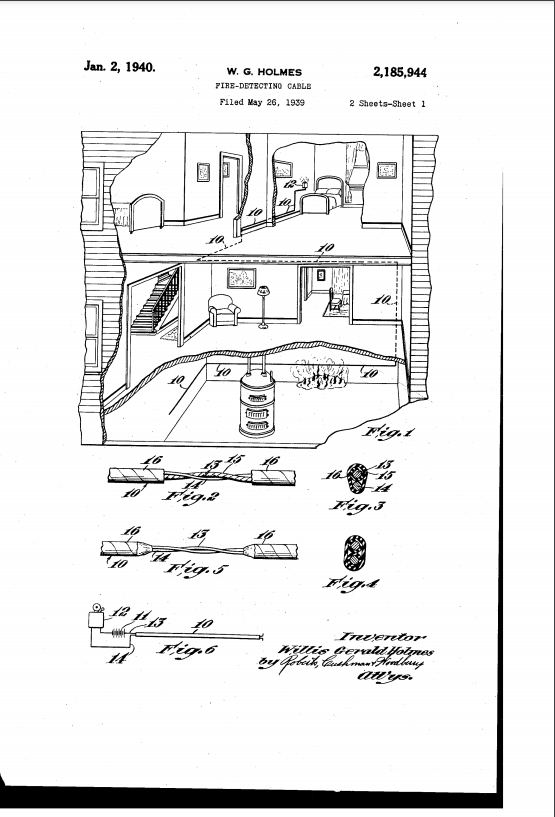 Jan. 2, 1940.
W. G. HOLMES
2,185,944
FIRE-DETECTING CABLE
Filed May 26, 1939
2 Sheets-Sheet 1
12
10
10
10
10
10
10
10
10
Fig.1
16
13
15
16
10
14
Fig.2
13
16
15
14
Fig.3
16
13
16
10
14
Fig.5
Fig.4
12
11
13
10
14
Fig.6
Inventor
Willis Gerald Holmes
by Roberts, Cushman & Woodberry
Attys.